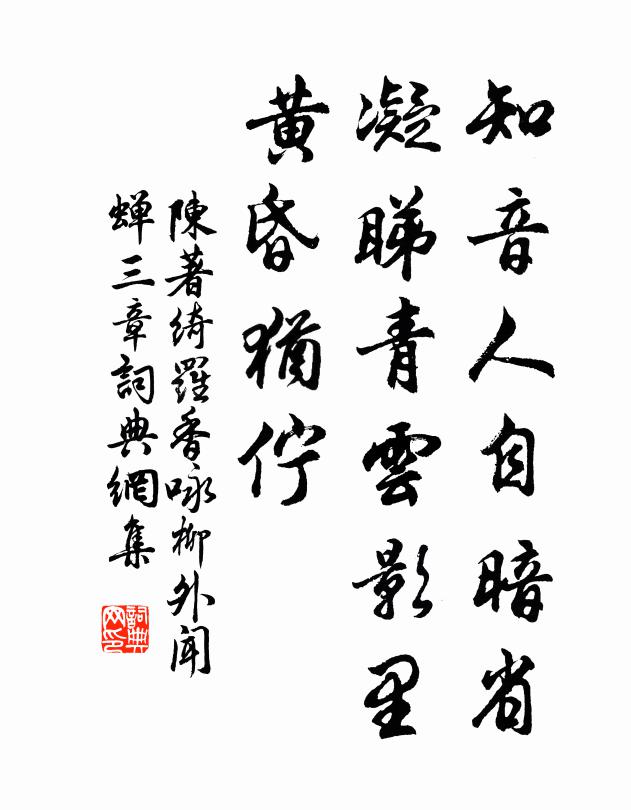 知音人自暗省
凝睇青雲影里
黄昏猶佇
陳著綺羅香咏柳外聞
蟬三章詞典網集
詞典网印